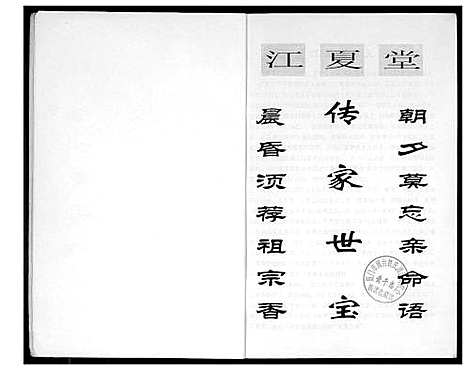 江夏堂
朝夕莫忘亲命语
传家世宝
晨昏须荐祖宗香